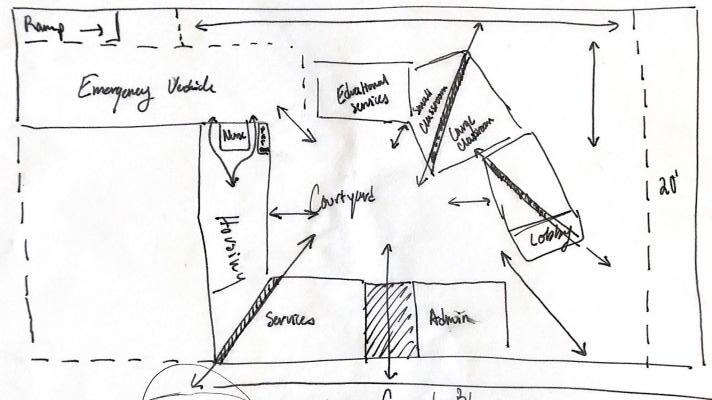 Ramp
Emergency Vehicle
Educational
Services
Small
Classroom
Large
Classroom
Nurse
Courtyard
20'
Housing
Lobby
Services
Admin